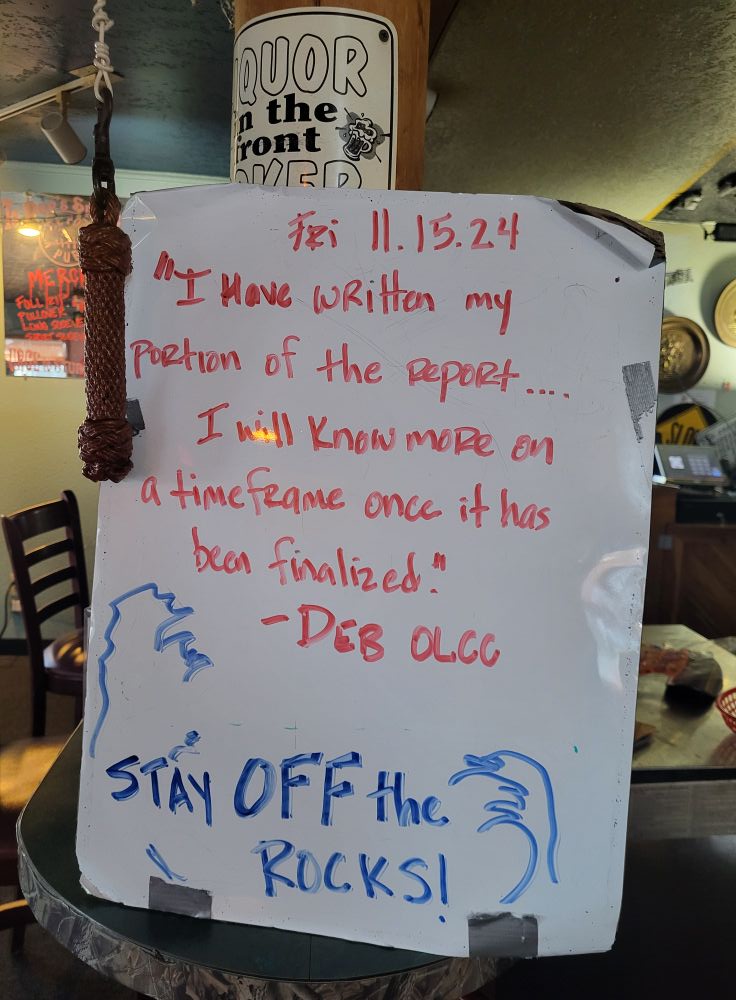 QUOR
n the
ront
OKER
Fri 11.15.24
"I Have written my
portion of the report....
I will know more on
a timeframe once it has
been finalized."
-DEB OLCC
STAY OFF the
ROCKS!
MERCH
FULL ZIP
PULLOVER
LONG SLEEVE